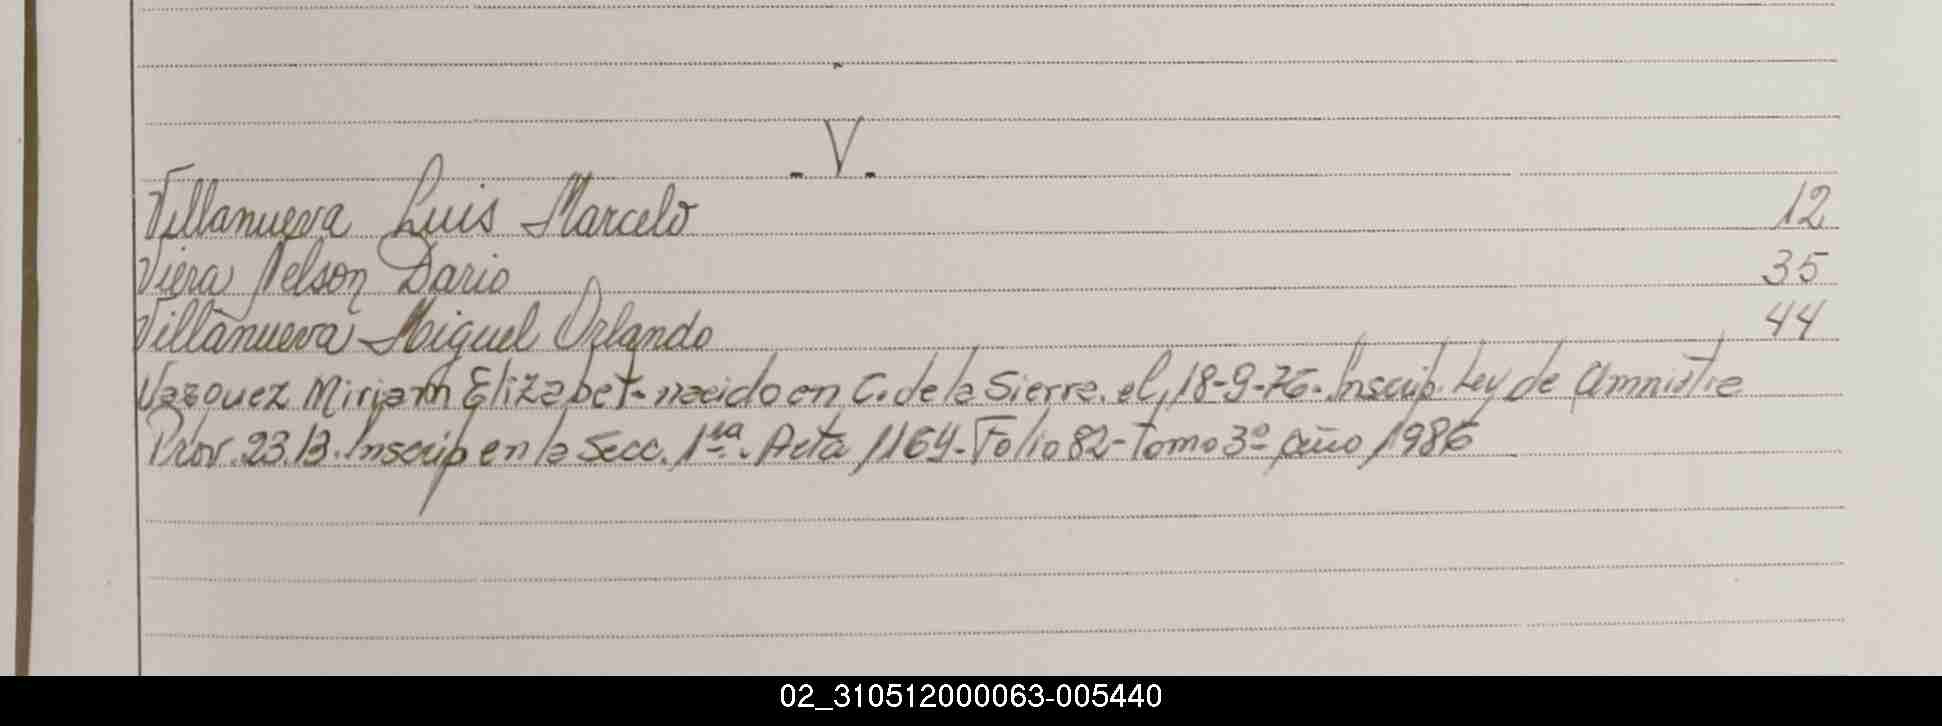 . V .
Villanueva Luis Marcelo 12
Viera Nelson Dario 35
Villanueva Miguel Orlando 44
Vazquez Miriam Elizabet - nacido en C. de la Sierra. el, 18-9-76. Inscrip. Ley de Amnistia
Prov. 2313. Inscrip en la Secc. 1ra. Acta 1164 - Folio 82 - Tomo 3º año 1986
02_310512000063-005440